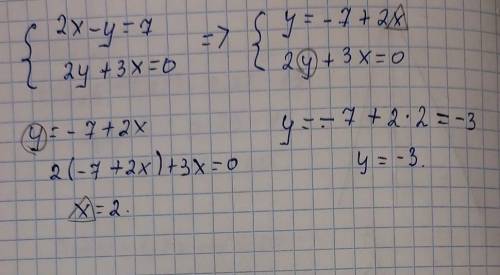 2x-y=7 => y=-7+2x
2y+3x=0 2y+3x=0
y=-7+2x
2(-7+2x)+3x=0
x=2.
y=-7+2·2=-3
y=-3.